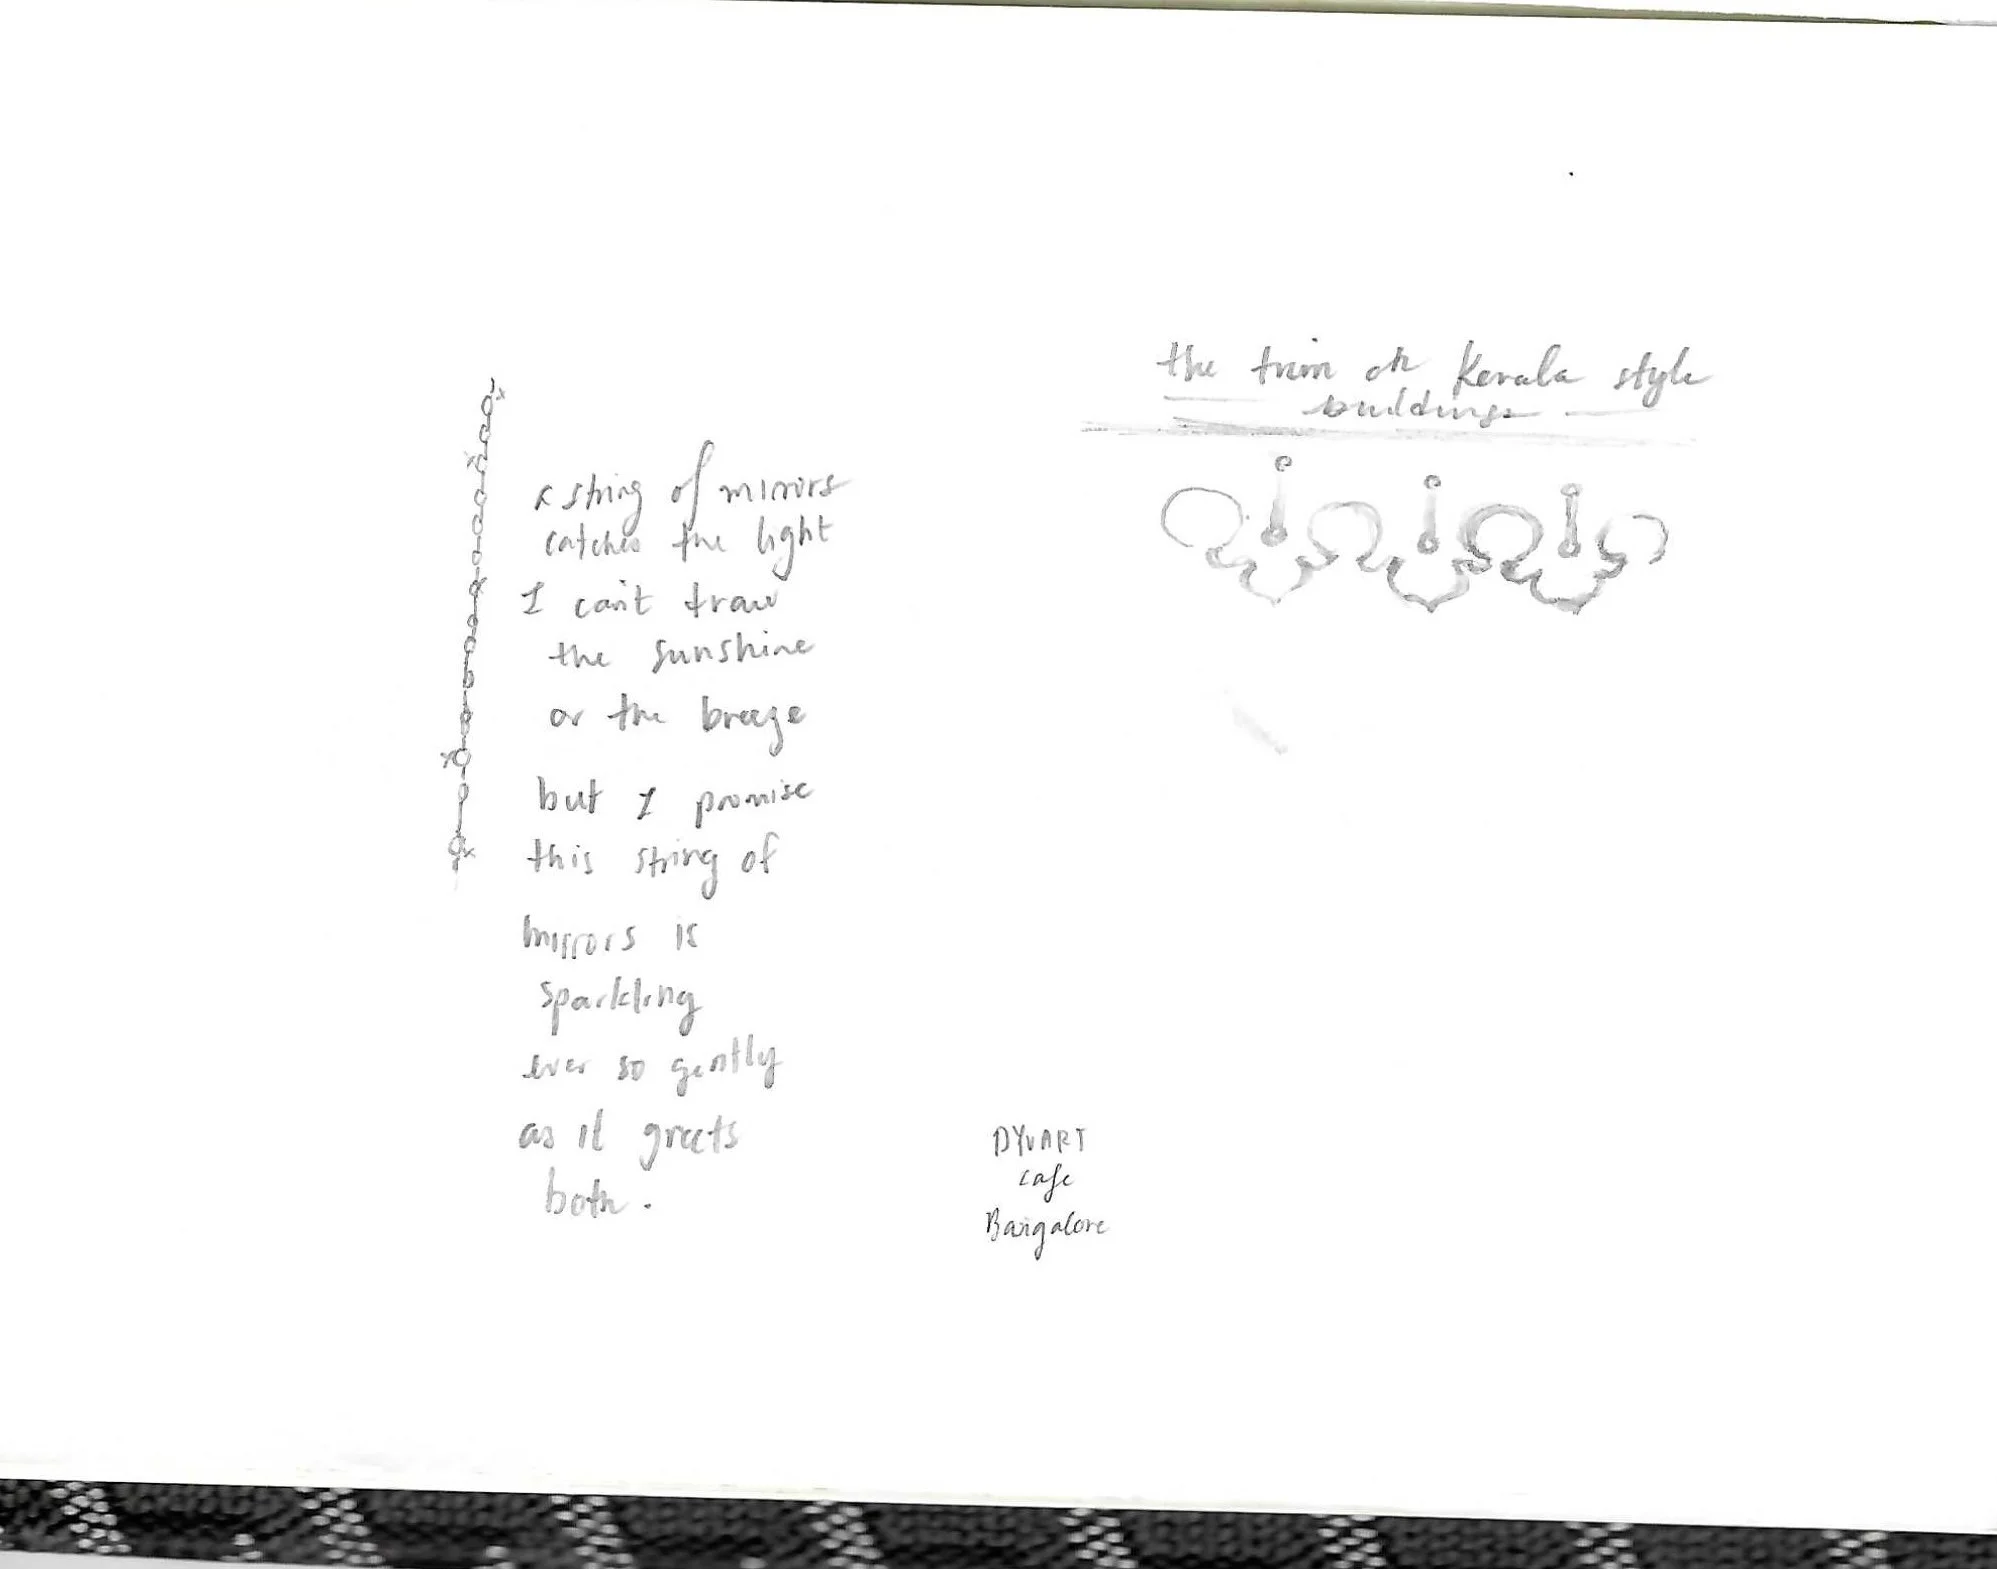 a string of mirrors
catches the light
I can't traw
the sunshine
or the breeze
but I promise
this string of
mirrors is
sparkling
ever so gently
as it greets
both.
the trim on Kerala style
buildings
DYUART
cafe
Bangalore